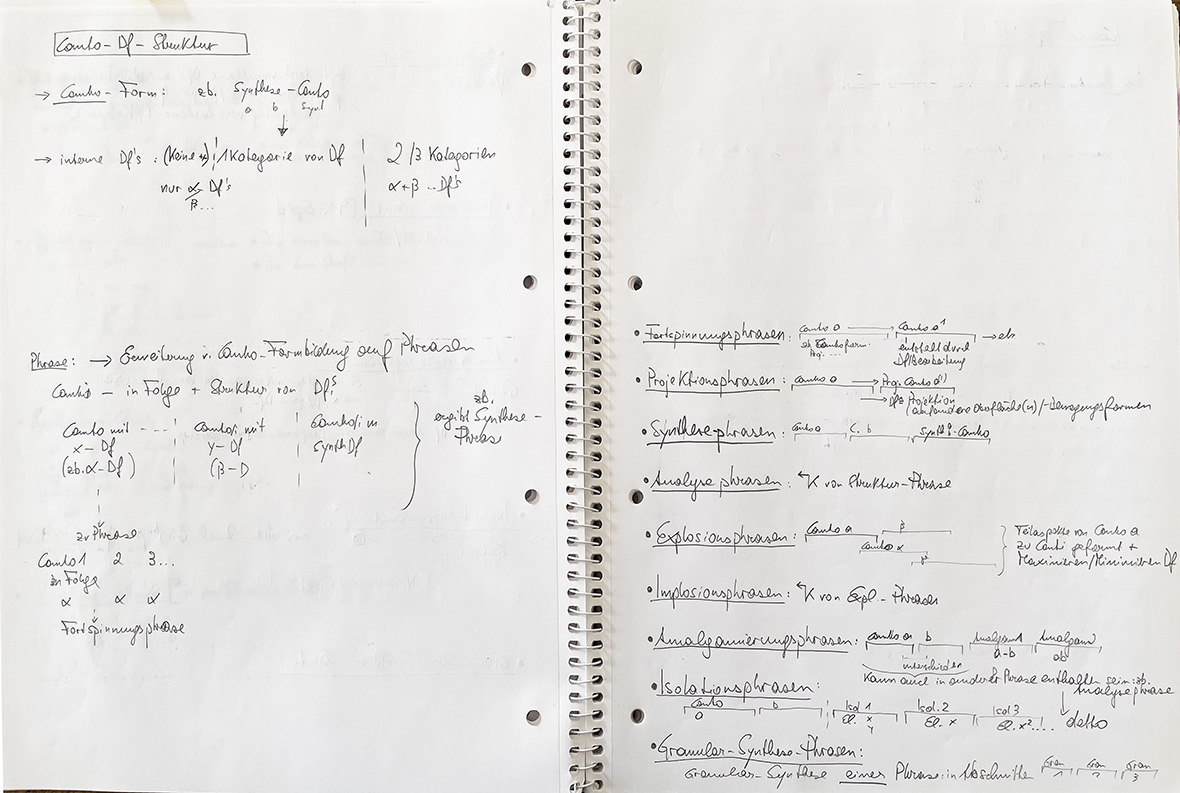 Canto-Df-Struktur
→ Canto-Form: zb. Synthese-Canto
a b Synt
→ interne Df's: (Keine) 1 Kategorie von Df 2/3 Kategorien
nur α Df's α+β ... Df's
β...
Phrase: → Erweiterung v. Canto-Formbildung auf Phrasen
in Folge + Struktur von Df's
Canto mit ---- Canto/i mit Canto/i m
x-Df y-Df synth Df
(zb. α-Df) (β-D
zb.
ergibt Synthese-
Phrase
zu Phrase
Canto 1 2 3...
in Folge
α α α
Fortspinnungsphrase
• Fortspinnungsphrasen: Canto a → Canto a¹ → etc
entfaltet durch
Df/Bearbeitung
• Projektionsphrasen: Canto a → Proj. Canto a¹)
→ Df's Projektion
auf andere Oberfläche(n)/-Bewegungsformen
• Synthese-phrasen: Canto a C. b Synth.-Canto
• Analysephrasen: K von Struktur-Phrase
• Explosionsphrasen: Canto a β
Canto α
Teilaspekte von Canto a
zu Canti geformt +
Maximieren/Minimieren Df
• Implosionsphrasen: K von Expl.-Phrasen
• Amalgamierungsphrasen: Canto a b Amalgam 1 Amalgam
a-b ab
unterschieden
Kann auch in anderer Phrase enthalten sein: zb.
Analysephrase
• Isolationsphrasen:
Canto b Isol 1 Isol. 2 Isol 3 ↓ detto
a El. x El. x El. x²....
y
• Granular-Synthese-Phrasen:
Granular-Synthese einer Phrase: in Abschnitten Gran Gran Gran
1 2 3